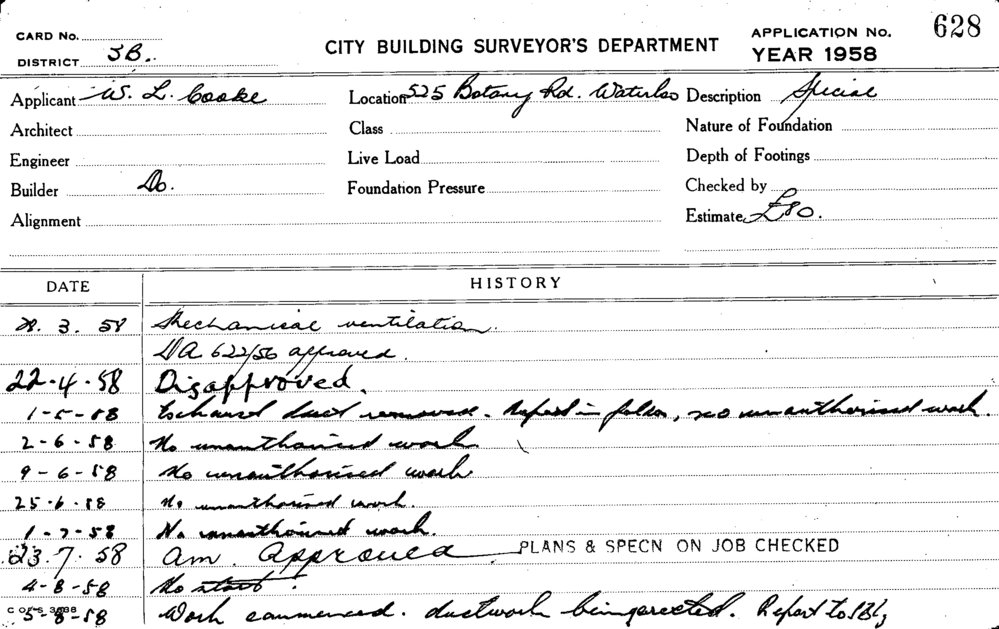 CARD No.
DISTRICT SB.
CITY BUILDING SURVEYOR'S DEPARTMENT
APPLICATION No. 628
YEAR 1958
Applicant W. L. Cooke Location 525 Botany Rd. Waterloo Description Special
Architect Class Nature of Foundation
Engineer Live Load Depth of Footings
Builder Do. Foundation Pressure Checked by
Alignment Estimate £80.
DATE HISTORY
28. 3. 58 Mechanical ventilation.
DA 622/56 approved.
22-4-58 Disapproved.
1-5-58 Exhaust duct removed. Report in folder, no unauthorised work.
2-6-58 No unauthorised work
9-6-58 No unauthorised work
25-6-58 No unauthorised work.
1-7-58 No unauthorised work.
23.7.58 Am. Approved PLANS & SPECN ON JOB CHECKED
4-8-58 No start.
5-8-58 Work commenced. ductwork being erected. Report to